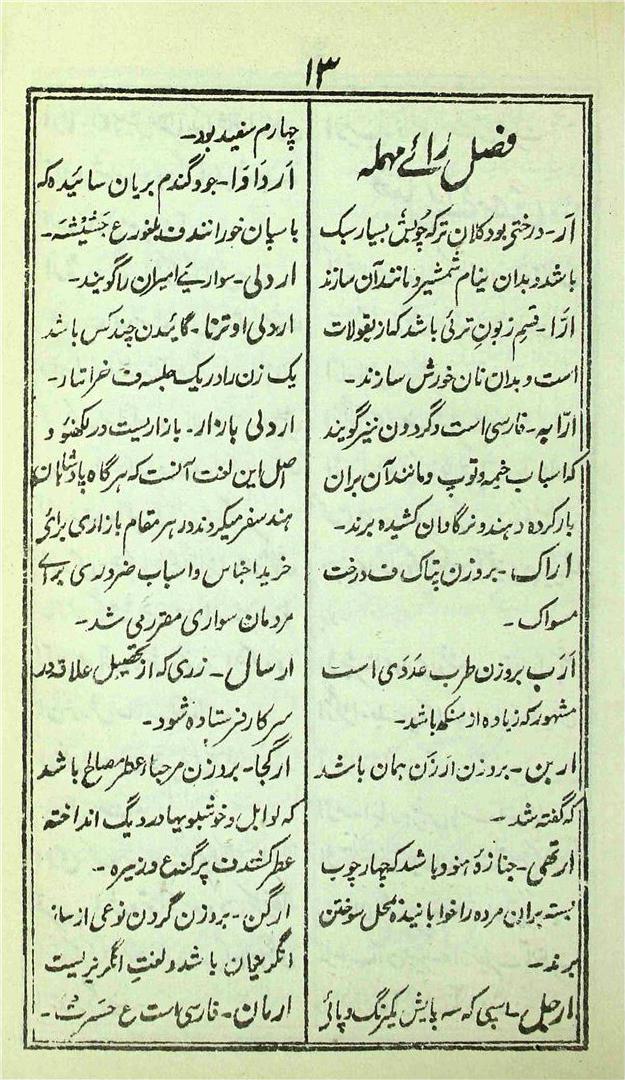 ۱۳
فصل رائے مہملہ
اَر۔ درختی بود کلان ترکہ چوبش بسیار سبک
باشد و بدان نیام شمشیر و مانند آن سازند
ارَا۔ قسم زبون ترئی باشد کہ از بقولات
است و بدان نان خورش سازند۔
ارّابہ۔ فارسی است و گردون نیز گویند
کہ اسباب خیمہ و توپ و مانند آن بران
بار کردہ دہند و نرگاوان کشیدہ برند۔
اراک۔ بروزن پتاک ف درخت
مسواک۔
اَرَب بروزن طرب عددی است
مشہور کہ زیادہ از سنکھ باشد۔
اربن۔ بروزن ارزن ہمان باشد
کہ گفتہ شد۔
ارتھی۔ جنازۂ ہنود باشد کہ چہار چوب
بستہ بران مردہ را خوابانیدہ بمحل سوختن
برند۔
ارجل۔ اسپی کہ سہ پایش یکرنگ و پائی
چہارم سفید بود۔
اَردَاوَا۔ جو و گندم بریان سائیدہ کہ
باسپان خورانند ف بلغور ع جَشِیْشَہ۔
اردلی۔ سواریٔ امیران را گویند۔
اردلی اوترنا۔ گائیدن چند کس باشد
یک زن را در یک جلسہ ف
اردلی بازار۔ بازاریست در لکھنؤ و
اصل این لغت آنست کہ ہر گاہ پادشاہان
ہند سفر میکردند در ہر مقام بازاری برائے
خرید اجناس و اسباب ضروری برائے
مردمان سواری مقرر می شد۔
ارسال۔ زری کہ از تحصیل علاقہ در
سرکار فرستادہ شود۔
ارگجا۔ بروزن مرحبا عطر مصالح باشد
کہ لوابل و خوشبویہا در دیگ انداختہ
عطر کشند ف پرگنہ ع ذریرہ۔
ارگن۔ بروزن گردن نوعی از ساز
انگریزیان باشد و لغت انگریزیست
ارمان۔ فارسی است ع حسرت۔